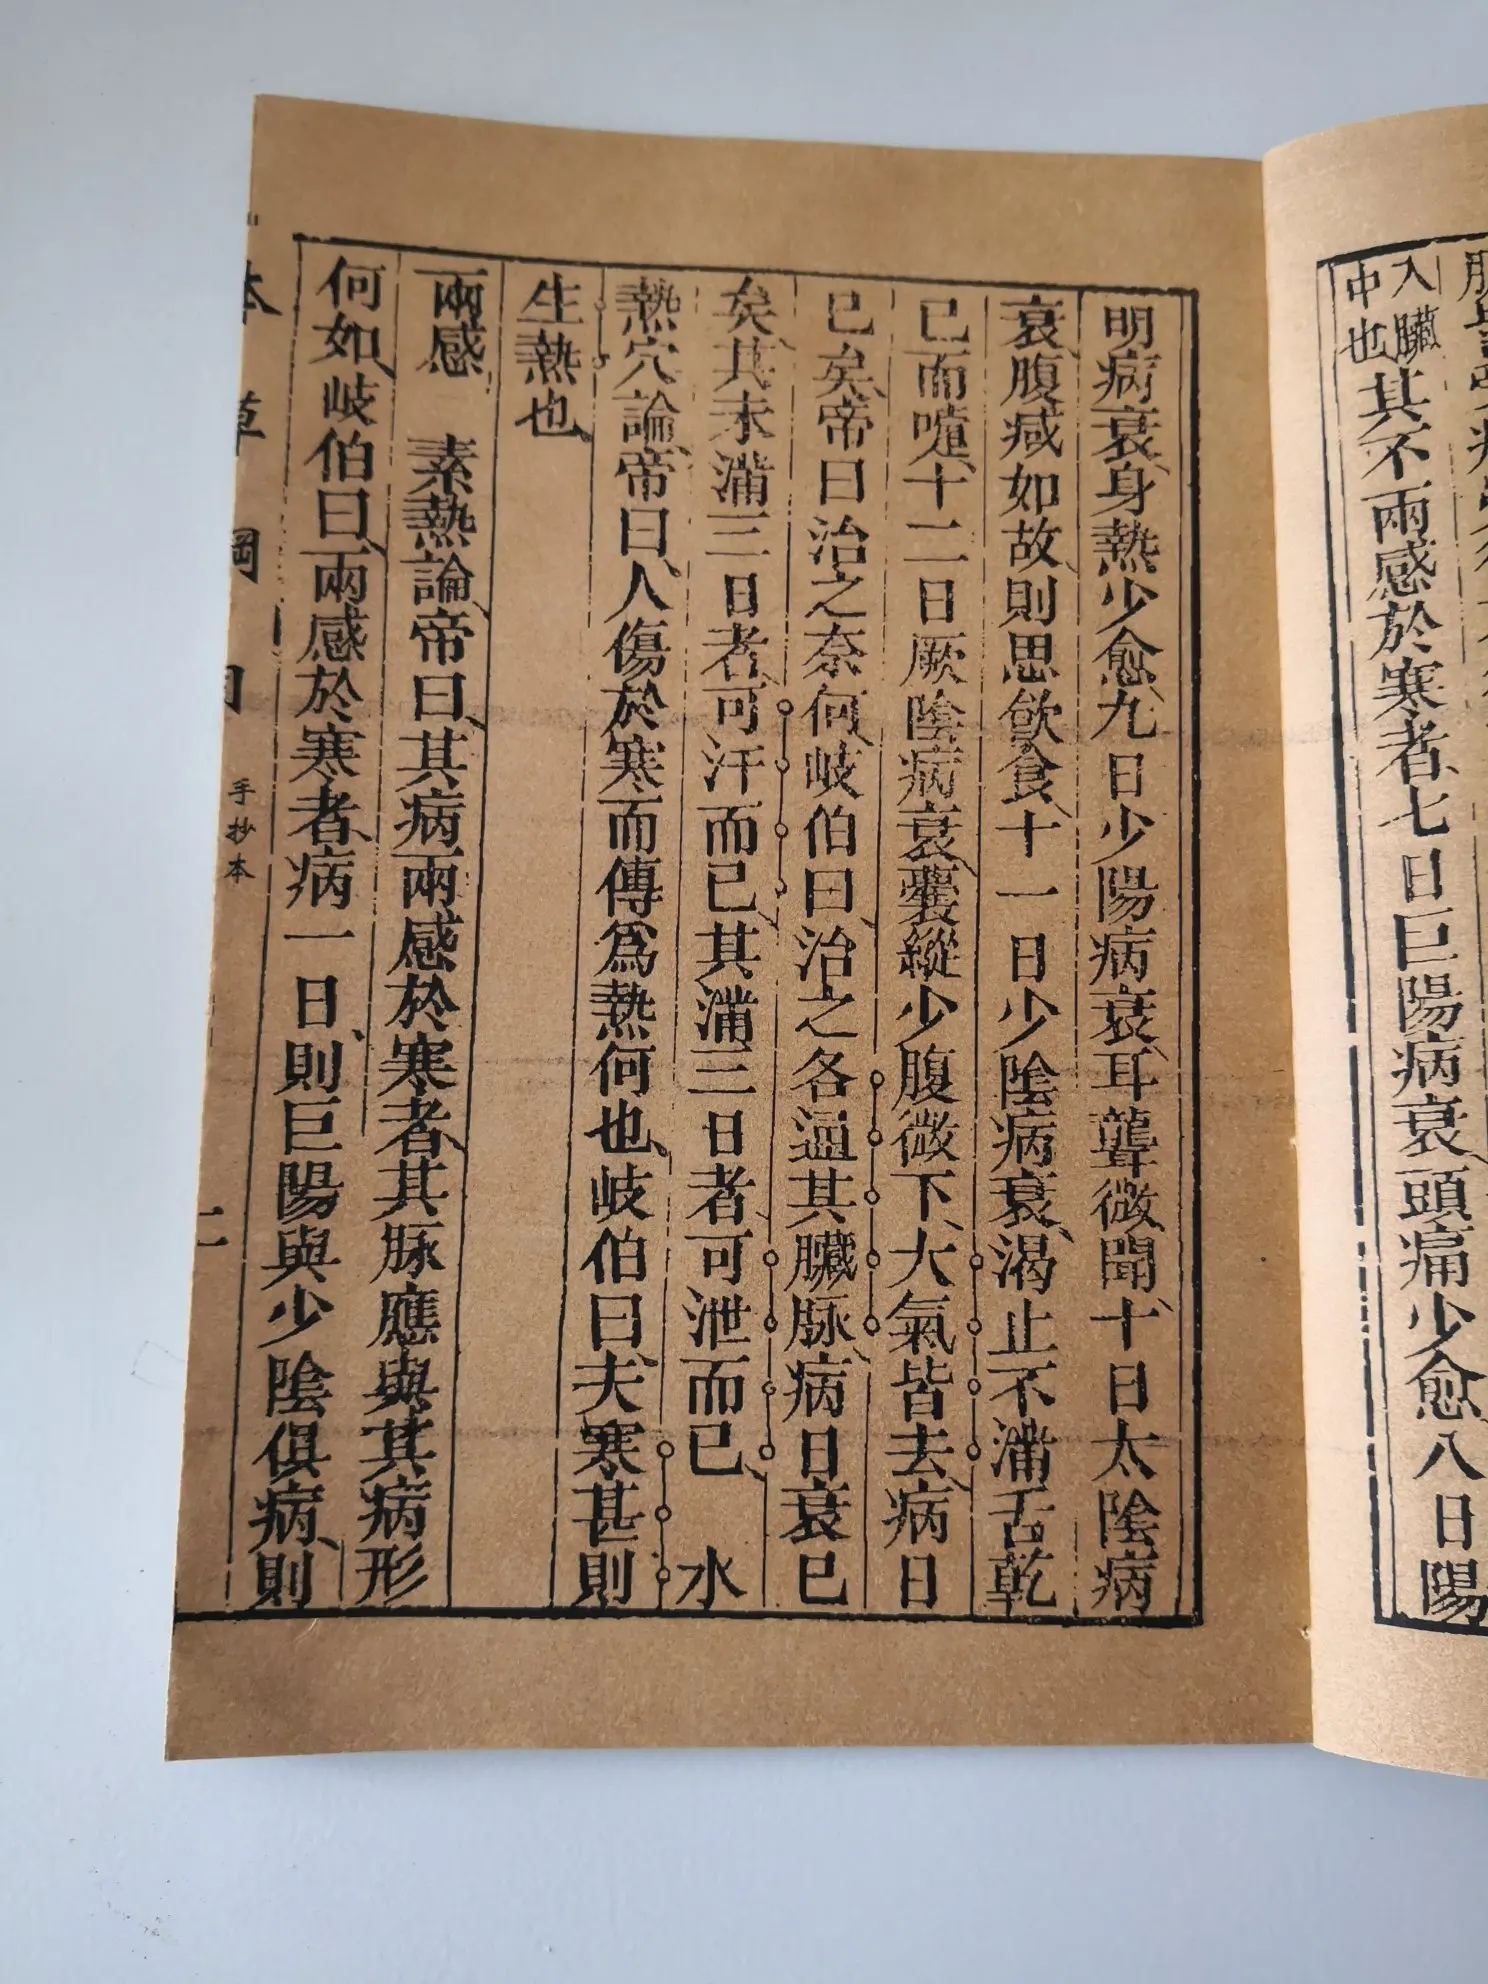 入臟
中也其不兩感於寒者七日巨陽病衰頭痛少愈八日陽
明病衰身熱少愈九日少陽病衰耳聾微聞十日太陰病
衰腹減如故則思飲食十一日少陰病衰渴止不滿舌乾
已而嚏十二日厥陰病衰囊縱少腹微下大氣皆去病日
已矣帝曰治之奈何岐伯曰治之各通其臟脉病日衰已
矣其未滿三日者可汗而已其滿三日者可泄而已 水
熱穴論帝曰人傷於寒而傳爲熱何也岐伯曰夫寒甚則
生熱也
兩感 素熱論帝曰其病兩感於寒者其脉應與其病形
何如岐伯曰兩感於寒者病一日則巨陽與少陰俱病則
本草綱目 手抄本 二